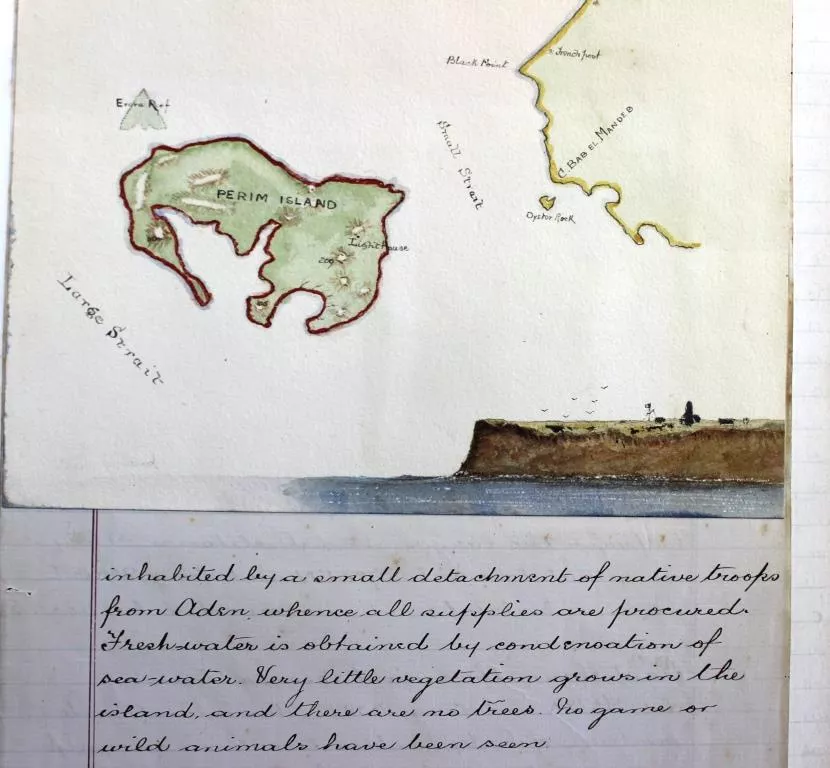 French Fort
Black Point
Reef
C. BAB EL MANDEB
Small Strait
PERIM ISLAND
Oyster Rock
LightHouse
Large Strait
inhabited by a small detachment of native troops
from Aden, whence all supplies are procured.
Fresh-water is obtained by condensation of
sea-water. Very little vegetation grows in the
island, and there are no trees. No game or
wild animals have been seen.